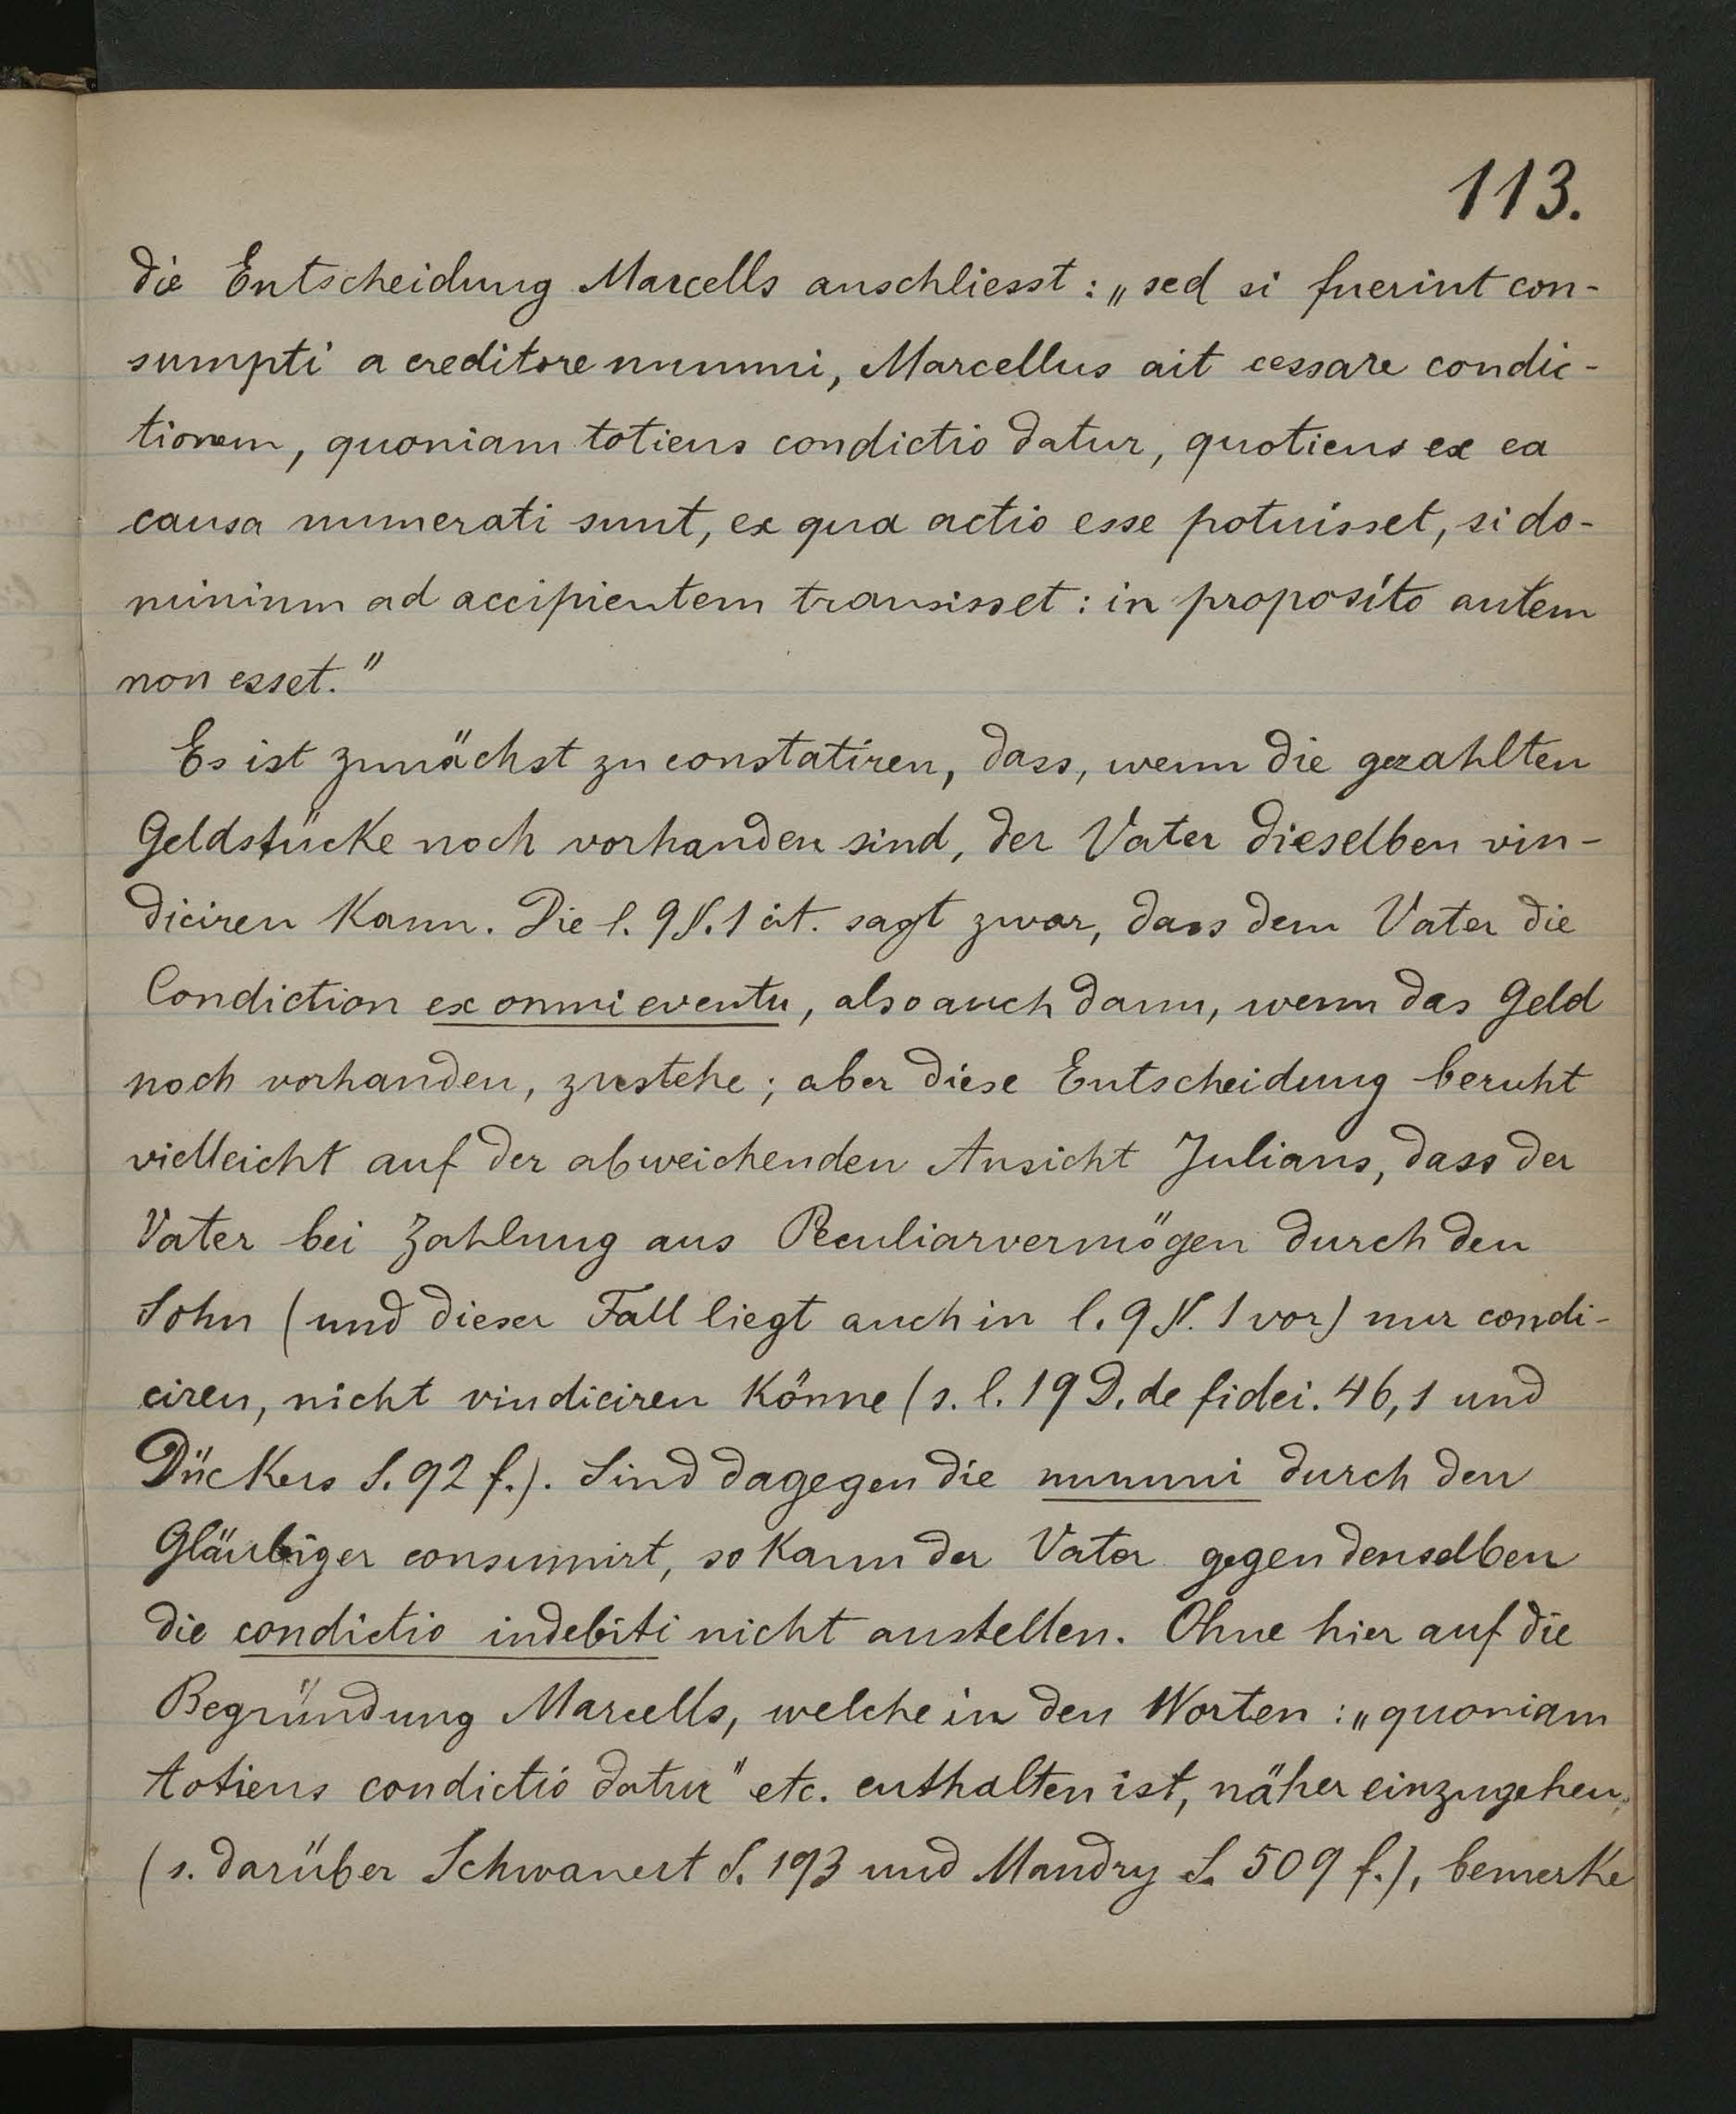 113.
die Entscheidung Marcells anschliesst: „sed si fuerint con-
sumpti a creditore nummi, Marcellus ait cessare condic-
tionem, quoniam totiens condictio datur, quotiens ex ea
causa numerati sunt, ex qua actio esse potuisset, si do-
minium ad accipientem transisset: in proposito autem
non esset."
Es ist zunächst zu constatiren, dass, wenn die gezahlten
Geldstücke noch vorhanden sind, der Vater dieselben vin-
diciren kann. Die l. 9 §. 1 cit. sagt zwar, dass dem Vater die
Condiction ex omni eventu, also auch dann, wenn das Geld
noch vorhanden, zustehe; aber diese Entscheidung beruht
vielleicht auf der abweichenden Ansicht Julians, dass der
Vater bei Zahlung aus Peculiarvermögen durch den
Sohn (und dieser Fall liegt auch in l. 9 §. 1 vor) nur condi-
ciren, nicht vindiciren könne (s. l. 19 D. de fidei. 46,1 und
Dückers S. 92 f.). Sind dagegen die nummi durch den
Gläubiger consumirt, so kann der Vater gegen denselben
die condictio indebiti nicht anstellen. Ohne hier auf die
Begründung Marcells, welche in den Worten: „quoniam
totiens condictio datur" etc. enthalten ist, näher einzugehen,
(s. darüber Schwanert S. 193 und Mandry S. 509 f.), bemerke